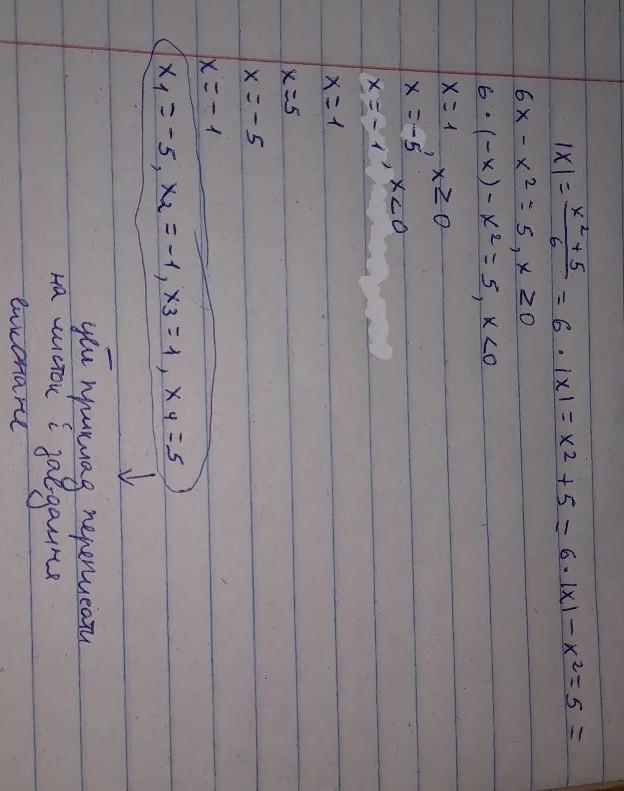 |x| = x²+5/6 = 6 · |x| = x² + 5 = 6 · |x| - x² = 5 =
6x - x² = 5, x ≥ 0
6 · (-x) - x² = 5, x < 0
x = 1, x ≥ 0
x = -5, x < 0
x = -1
x = 1
x = 5
x = -5
x = -1
x₁ = -5, x₂ = -1, x₃ = 1, x₄ = 5
↓
цей приклад переписати
на листок і завдання
виконане